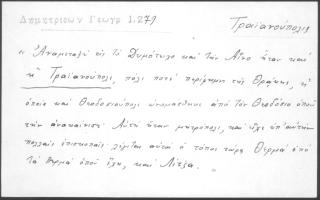 Δημητριέων Γεωγρ 1.279
Τραϊανούπολις
« Ἀναμεταξὺ εἰς τὸ Δυμότυχο καὶ τὴν Αἶνο ἦταν καὶ
ἡ Τραϊανούπολι, πόλι ποτὲ περίφημη τῆς Θράκης, ἡ
ὁποία καὶ Θεοδοσιούπολι ὠνομάσθηκε ἀπὸ τὸν Θεοδόσιο ὁποῦ
τὴν ἀνακαίνισε. Αὐτὴ ἦταν μητρόπολι, καὶ εἶχε ὑπ' αὐτὴν
πολλαὶς ἐπισκοπαίς. λέγεται αὐτὰ ὁ τόπος τώρα Θερμά ἀπὸ
τὰ θερμὰ ὁποῦ ἔχει, καὶ Λίτζα.